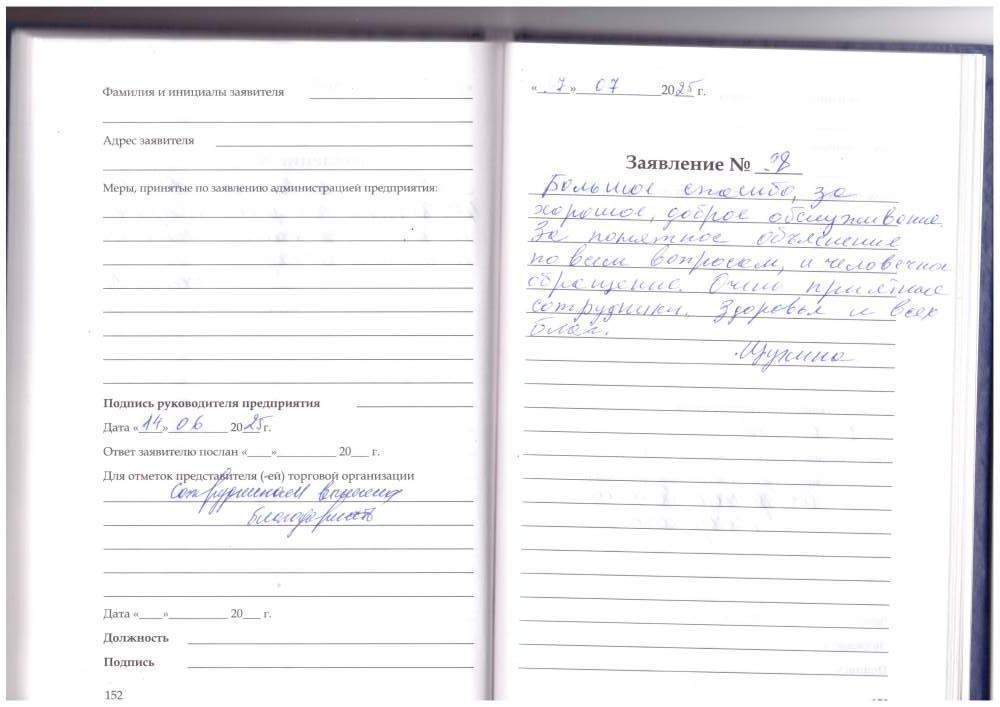 Фамилия и инициалы заявителя
Адрес заявителя
Меры, принятые по заявлению администрацией предприятия:
Подпись руководителя предприятия
Дата «14» 06 2025 г.
Ответ заявителю послан «___»__________ 20___ г.
Для отметок представителя (-ей) торговой организации
Сотрудникам
благодарность
Дата «____»__________ 20___ г.
Должность
Подпись
152
«7» 07 2025 г.
Заявление № 38
Большое спасибо, за
хорошое, доброе обслуживание.
За понятное объяснение
по всем вопросам, и человечное
обращение. Очень приятные
сотрудники. Здоровья и всех
благ.